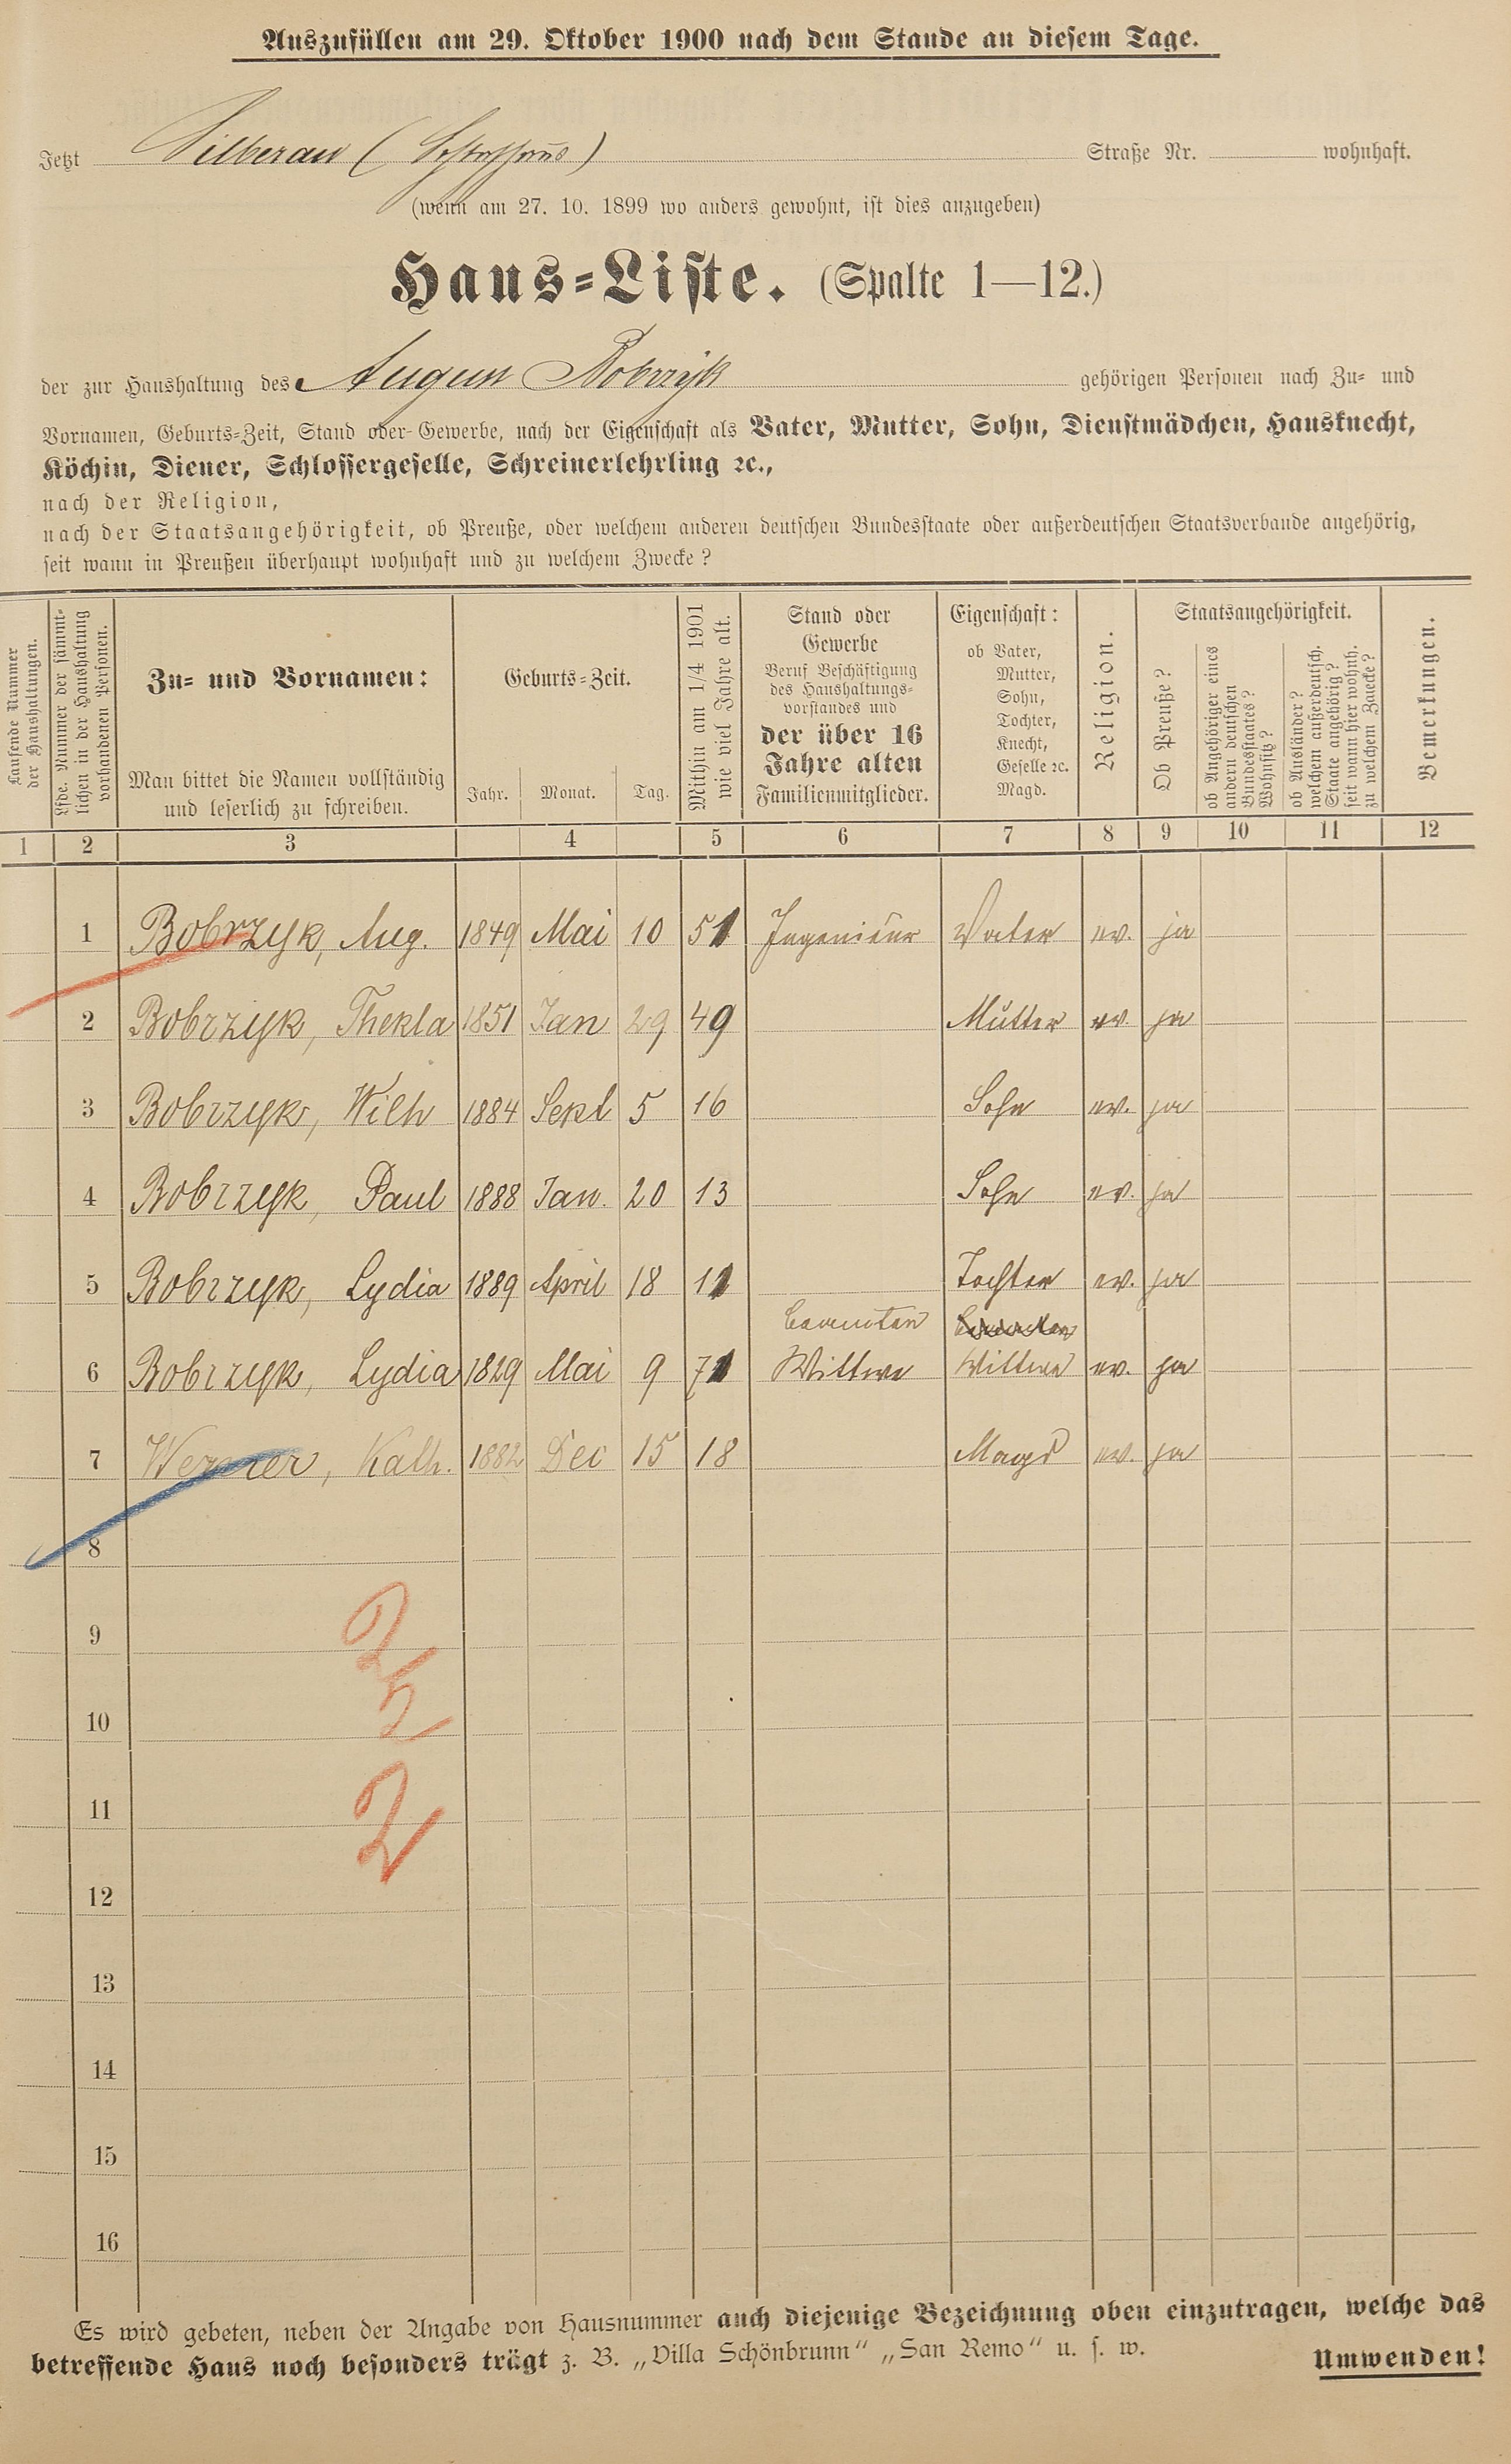 Auszufüllen am 29. Oktober 1900 nach dem Stande an diesem Tage.
Jetzt Silberau ( ) Straße Nr. wohnhaft.
(wenn am 27. 10. 1899 wo anders gewohnt, ist dies anzugeben)
Haus-Liste. (Spalte 1—12.)
der zur Haushaltung des August Bobrzyk gehörigen Personen nach Zu- und
Vornamen, Geburts-Zeit, Stand oder Gewerbe, nach der Eigenschaft als Vater, Mutter, Sohn, Dienstmädchen, Hausknecht,
Köchin, Diener, Schlossergeselle, Schreinerlehrling ꝛc.,
nach der Religion,
nach der Staatsangehörigkeit, ob Preuße, oder welchem anderen deutschen Bundesstaate oder außerdeutschen Staatsverbande angehörig,
seit wann in Preußen überhaupt wohnhaft und zu welchem Zwecke?
Laufende Nummer
der Haushaltungen.
Lfde. Nummer der sämmt-
lichen in der Haushaltung
vorhandenen Personen.
Zu- und Vornamen:
Man bittet die Namen vollständig
und leserlich zu schreiben.
Geburts-Zeit.
Jahr. Monat. Tag.
Mithin am 1/4 1901
wie viel Jahre alt.
Stand oder
Gewerbe
Beruf Beschäftigung
des Haushaltungs-
vorstandes und
der über 16
Jahre alten
Familienmitglieder.
Eigenschaft:
ob Vater,
Mutter,
Sohn,
Tochter,
Knecht,
Geselle ꝛc.
Magd.
Religion.
Staatsangehörigkeit.
Ob Preuße?
ob Angehöriger eines
andern deutschen
Bundesstaates?
Wohnsitz?
ob Ausländer?
welchem außerdeutsch.
Staate angehörig?
seit wann hier wohnh.
zu welchem Zwecke?
Bemerkungen.
1 2 3 4 5 6 7 8 9 10 11 12
1 Bobrzyk, Aug. 1849 Mai 10 51 Ingenieur Vater ev. ja
2 Bobrzyk, Thekla 1851 Jan 29 49 Mutter ev. ja
3 Bobrzyk, Wilh 1884 Sept 5 16 Sohn ev. ja
4 Bobrzyk, Paul 1888 Jan. 20 13 Sohn ev. ja
5 Bobrzyk, Lydia 1889 April 18 11 Tochter ev. ja
Beamten
6 Bobrzyk, Lydia 1829 Mai 9 71 Wittwe Wittwe ev. ja
7 Werner, Kath. 1882 Dec 15 18 Magd ev. ja
8
9
2
5
10
11
2
12
13
14
15
16
Es wird gebeten, neben der Angabe von Hausnummer auch diejenige Bezeichnung oben einzutragen, welche das
betreffende Haus noch besonders trägt z. B. „Villa Schönbrunn“ „San Remo“ u. s. w. Umwenden!